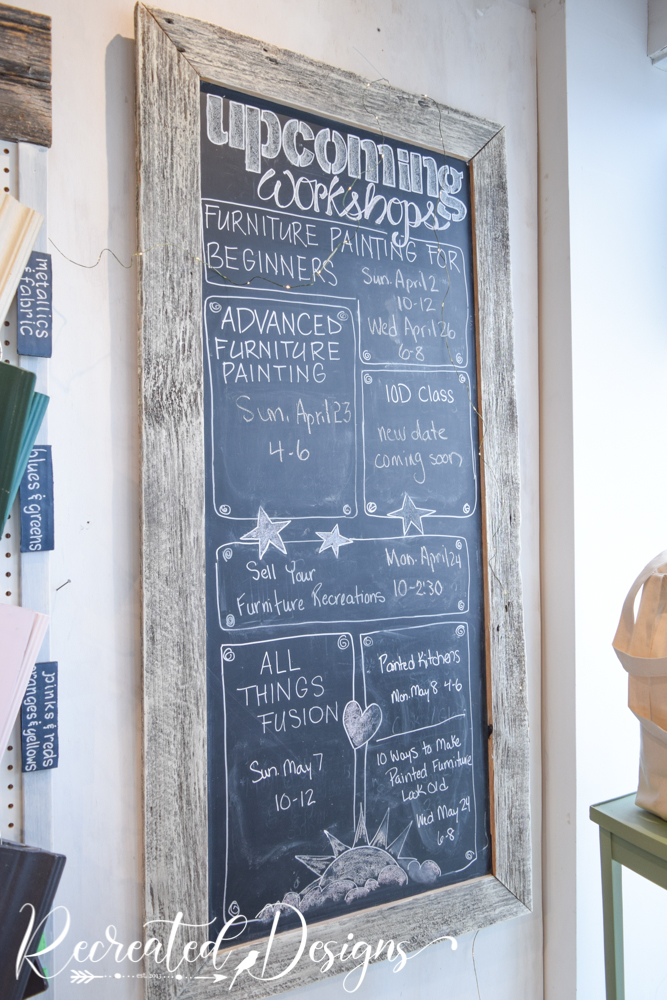 upcoming
workshops
FURNITURE PAINTING FOR
BEGINNERS
Sun. April 2
10-12
Wed April 26
6-8
ADVANCED
FURNITURE
PAINTING
Sun. April 23
4-6
10D Class
new date
coming soon
Sell Your
Furniture Recreations
Mon. April 24
10-2:30
ALL
THINGS
FUSION
Sun. May 7
10-12
Painted Kitchens
Mon. May 8 4-6
10 Ways to Make
Painted Furniture
Look Old
Wed May 24
6-8
metallics
& fabric
blues & greens
pinks & reds
oranges & yellows
Recreated Designs